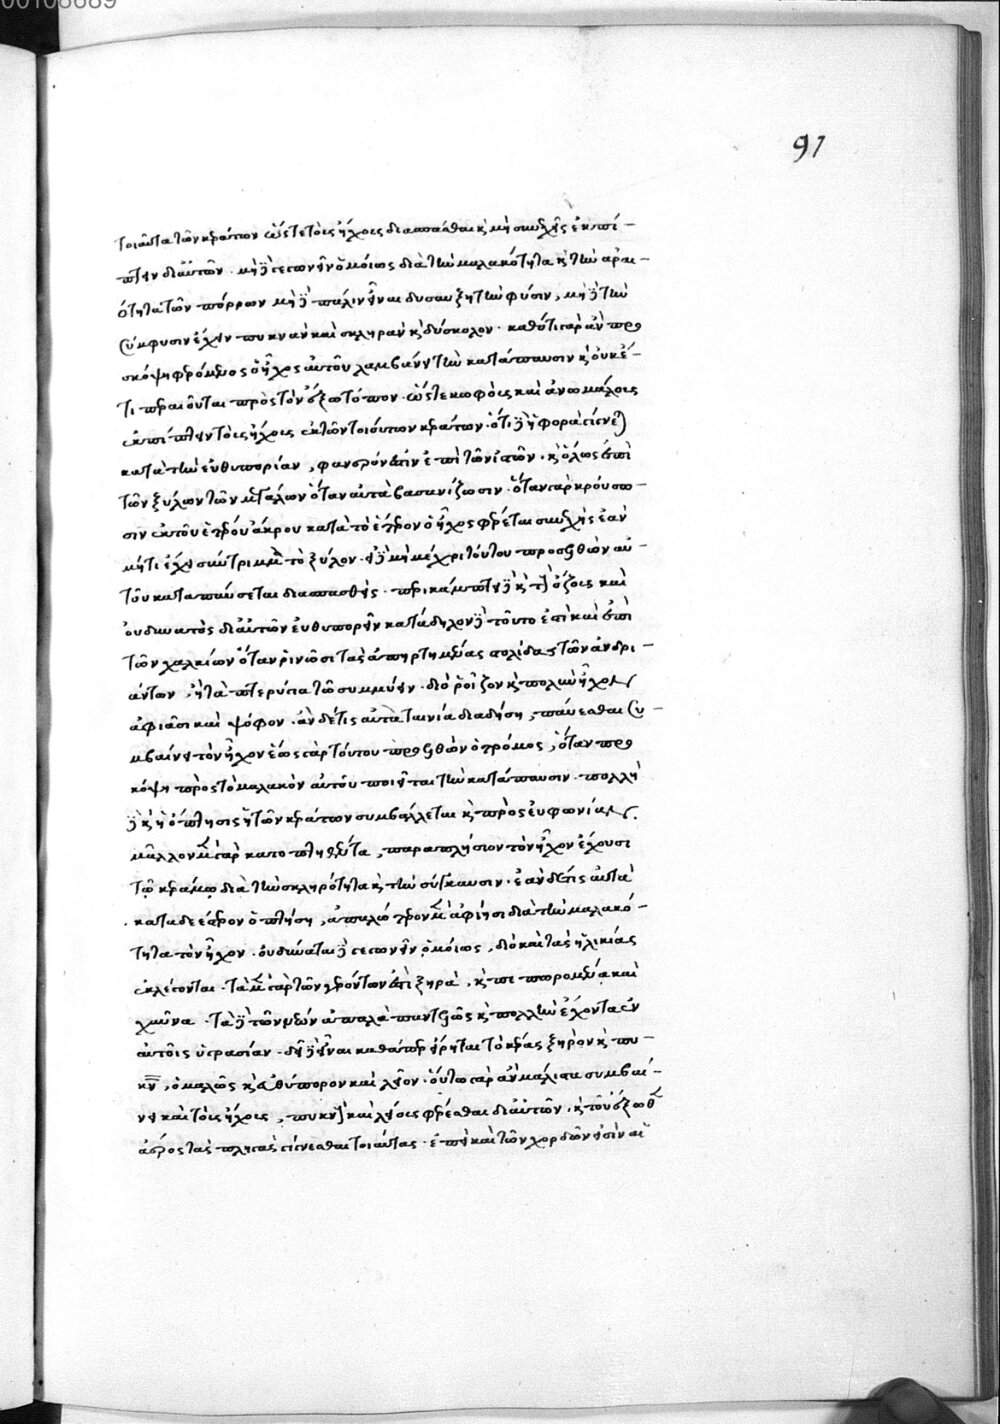 00108689
91
τοιαῦτα τῶν κεράτων ὥστε τοὺς ἤχους διασπᾶσθαι καὶ μὴ συνεχεῖς ἐκπί-
πτειν δι' αὐτῶν. μὴ δὲ γεγωνεῖν ὁμοίως διὰ τὴν μαλακότητα καὶ τὴν ἀραι-
ότητα τῶν πόρων μὴ δὲ πάλιν εἶναι δυσαυξῆ τὴν φύσιν, μὴ δὲ τὴν
σύμφυσιν ἔχειν πυκνὰν καὶ σκληρὰν καὶ δύσκολον. καθ' ὅ τι γὰρ ἂν προσ
σκόψῃ φερόμενος ὁ ἦχος αὐτοῦ λαμβάνει τὴν κατάπαυσιν καὶ οὐκέ-
τι περαιοῦται πρὸς τὸν ἔξω τόπον. ὥστε κωφοὺς καὶ ἀνωμάλους
ἐκπίπτειν τοὺς ἤχους ἐκ τῶν τοιούτων κεράτων. ὅτι δὲ ἡ φορὰ γίνεται
κατὰ τὴν εὐθυπορίαν, φανερόν ἐστιν ἐπὶ τῶν ἱστῶν. καὶ ὅλως ἐπὶ
τῶν ξύλων τῶν μεγάλων ὅταν αὐτὰ βασανίζωσιν. ὅταν γὰρ κρούσω-
σιν ἐκ τοῦ ἑτέρου ἄκρου κατὰ τὸ ἕτερον ὁ ἦχος φέρεται συνεχὴς ἐὰν
μή τι ἔχῃ σύντριμμα τὸ ξύλον. εἰ δὲ μὴ μέχρι τούτου προσελθὼν αὐ-
τοῦ καταπαύσεται διασπασθείς. περικάμπτει δὲ καὶ τοὺς ὄζους καὶ
οὐ δυνατὸς δι' αὐτῶν εὐθυπορεῖν κατάδηλον δὲ τοῦτο ἐστὶ καὶ ἐπὶ
τῶν χαλκίων ὅταν ῥινῶσι τὰς ἀπηρτημένας στολίδας τῶν ἀνδρι-
άντων, ἢ τὰ πτερύγια τῷ συμμύειν. διὸ ῥοῖζον καὶ πολὺν ἦχον
ἀφιᾶσι καὶ ψόφον. ἂν δέ τις αὐτὰ ταινίᾳ διαδήσῃ, παύεσθαι συ-
μβαίνει τὸν ἦχον ἕως γὰρ τούτου προσελθὼν ὁ τρόμος, ὅταν προσ
κόψῃ πρὸς τὸ μαλακὸν αὐτοῦ ποιεῖται τὴν κατάπαυσιν. πολλὴ
δὲ καὶ ἡ ὄπτησις ἡ τῶν κεράτων συμβάλλεται καὶ πρὸς εὐφωνίαν.
μᾶλλον μὲν γὰρ κατοπτηθέντα, παραπλήσιον τὸν ἦχον ἔχουσι
τῷ κεράμῳ διὰ τὴν σκληρότητα καὶ τὴν σύγκαυσιν. ἐὰν δέ τις αὐτὰ
καταδεέστερον ὀπτήσῃ, ἁπαλώτερον μὲν ἀφίησι διὰ τὴν μαλακό-
τητα τὸν ἦχον. οὐ δύναται δὲ γεγωνεῖν ὁμοίως, διὸ καὶ τὰς ἡλικίας
ἐκλέγονται. τὰ μὲν γὰρ τῶν γερόντων ἐστὶ ξηρὰ, καὶ πεπωρωμένα καὶ
χαῦνα. τὰ δὲ τῶν νέων ἁπαλὰ παντελῶς καὶ πολλὴν ἔχοντα ἐν
αὐτοῖς ὑγρασίαν. δεῖ δὲ εἶναι καθάπερ εἴρηται τὸ κέρας ξηρὸν καὶ πυ-
κνὸν, ὁμαλῶς καὶ εὐθύπορον καὶ λεῖον. οὕτω γὰρ ἂν μάλιστα συμβαί-
νει καὶ τοὺς ἤχους, πυκνοὺς καὶ λείους φέρεσθαι δι' αὐτῶν, καὶ τοῦ ἔξωθεν
ἀέρος τὰς πληγὰς γίνεσθαι τοιαύτας. ἐπεὶ καὶ τῶν χορδῶν εἰσὶν αἱ